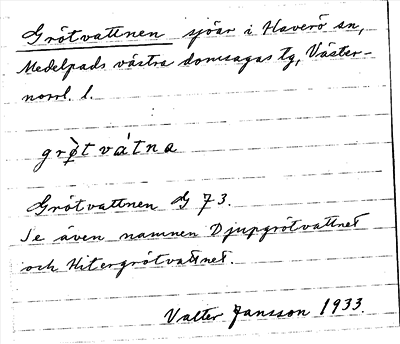 Grötvattnen sjöar i Haverö sn,
Medelpads västra domsagas tg, Väster-
norrl. l.
grø̀t vátna
Grötvattnen G 73.
Se även namnen Djupgrötvattnet
och Hitergrötvattnet.
Valter Jansson 1933.